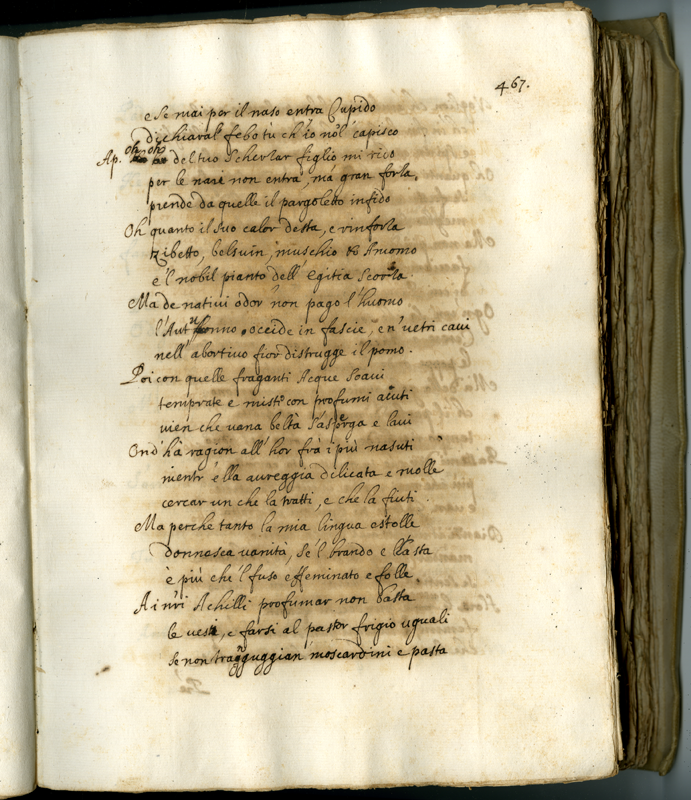 467.
e se mai per il naso entra Cupido
dichiaral febo tù ch'io nol' capisco
Ap. oh oh del tuo scherzar figlio mi rido
per le nari non entra, mà gran forza
prende da quelle il pargoletto infido
Oh quanto il suo calor desta, e rinforza
zibetto, belsuin, muschio et Amomo
e'l nobil pianto dell' egitia scorza
Ma de nativi odor' non pago l'huomo
l'Autunno occide in fascie, e n' vetri cavi
nell' abortivo fior distrugge il pomo.
Poi con quelle fraganti Acque soavi
temprate e misti con profumi acuti
vien che vana beltà s'asperga e lavi
Ond' hà ragion all' hor frà i più nasuti
mentr' ella aureggia dilicata e molle
cercar un che la tratti, e che la fiuti.
Ma perche tanto la mia lingua estolle
donnesca vanità, se'l brando e l'asta
è più che'l fuso effeminato e folle.
A i nri Achilli profumar non basta
le vesti, e farsi al pastor frigio uguali
se non moscardini e pasta